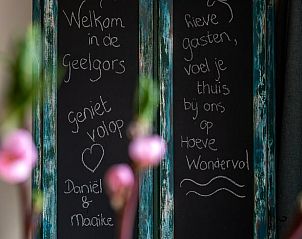 Welkom
in de
Geelgors
geniet
volop
Daniël
&
Maaike
lieve
gasten,
voel je
thuis
bij ons
op
Hoeve
Wondervol